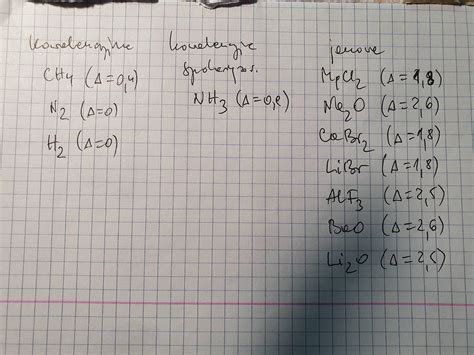 kowalencyjne
CH4 (Δ=0,4)
N2 (Δ=0)
H2 (Δ=0)
kowalencyjne
spolaryzow.
NH3 (Δ=0,9)
jonowe
MgCl2 (Δ=1,8)
Na2O (Δ=2,6)
CaBr2 (Δ=1,8)
LiBr (Δ=1,8)
AlF3 (Δ=2,5)
BaO (Δ=2,6)
Li2O (Δ=2,5)